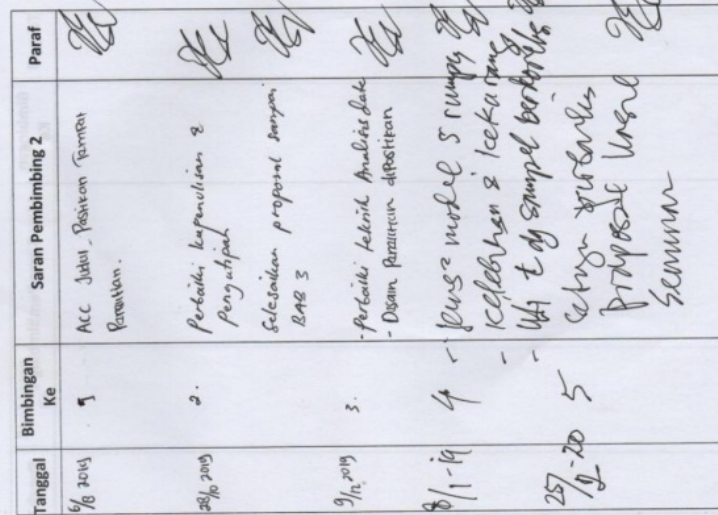 Tanggal Bimbingan Ke Saran Pembimbing 2 Paraf
6/8 2019 1 ACC Judul. Pastikan Tempat
Penelitian.
28/10 2019 2. Perbaiki kepenulisan &
pengutipan
Selesaikan proposal sampai
BAB 3
9/12 2019 3. - Perbaiki teknik Analisis data
- Disain Penelitian dipastikan
8/1-19 4 - model 5
kelebihan & kekurang
- Uji t dg sampel
25/2-20 5
proposal
Seminar